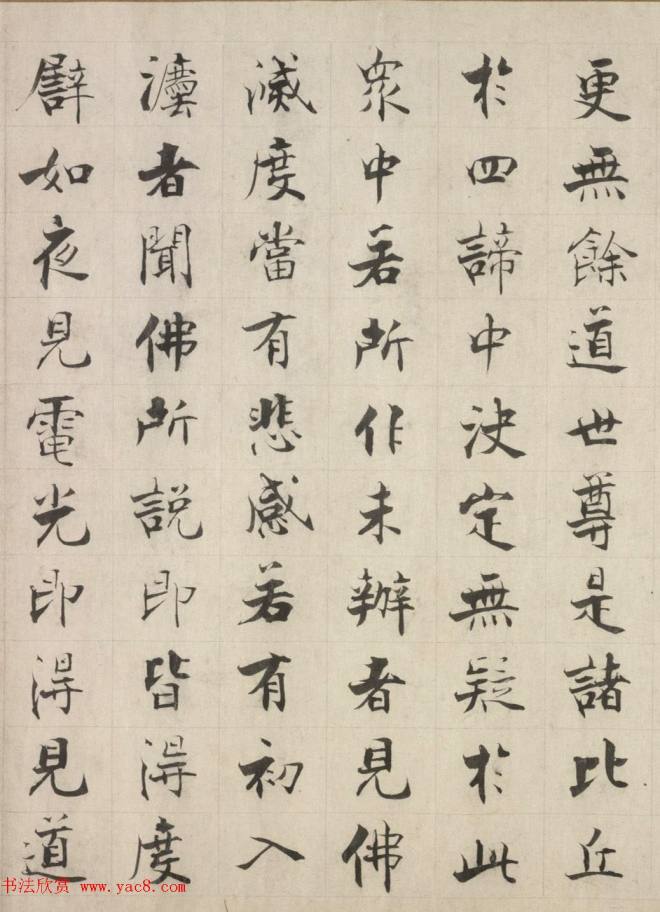 更無餘道世尊是諸比丘
於四諦中決定無疑於此
眾中若所作未辦者見佛
滅度當有悲感若有初入
灋者聞佛所説即皆得度
譬如夜見電光即得見道
书法欣赏 www.yac8.com